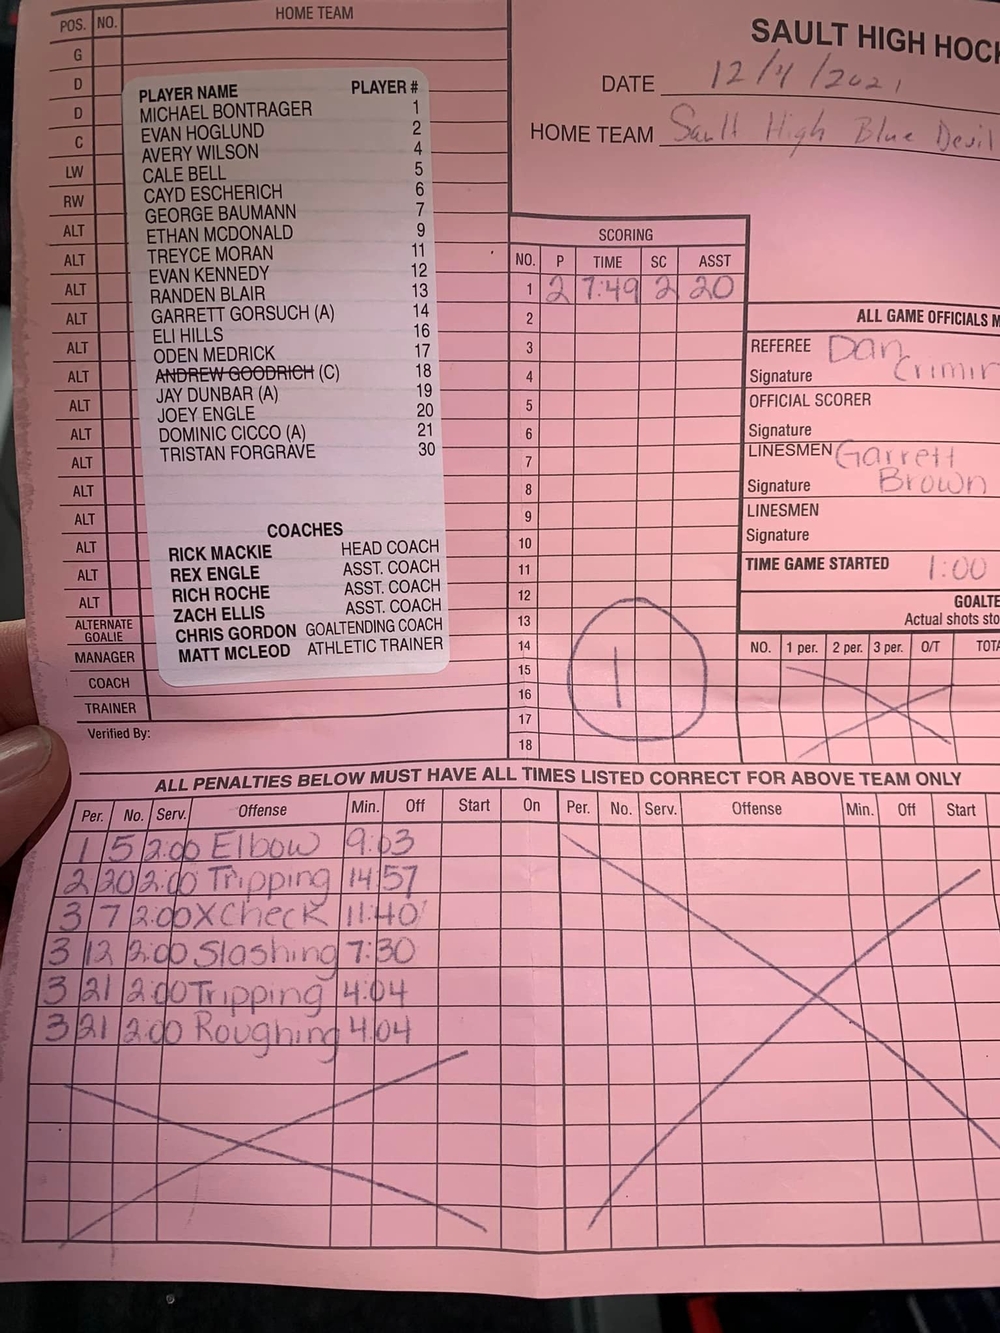 POS. NO. HOME TEAM
G
D
D
C
LW
RW
ALT
ALT
ALT
ALT
ALT
ALT
ALT
ALT
ALT
ALT
ALT
ALT
ALT
ALT
ALTERNATE GOALIE
MANAGER
COACH
TRAINER
Verified By:
PLAYER NAME PLAYER #
MICHAEL BONTRAGER 1
EVAN HOGLUND 2
AVERY WILSON 4
CALE BELL 5
CAYD ESCHERICH 6
GEORGE BAUMANN 7
ETHAN MCDONALD 9
TREYCE MORAN 11
EVAN KENNEDY 12
RANDEN BLAIR 13
GARRETT GORSUCH (A) 14
ELI HILLS 16
ODEN MEDRICK 17
ANDREW GOODRICH (C) 18
JAY DUNBAR (A) 19
JOEY ENGLE 20
DOMINIC CICCO (A) 21
TRISTAN FORGRAVE 30
COACHES
RICK MACKIE HEAD COACH
REX ENGLE ASST. COACH
RICH ROCHE ASST. COACH
ZACH ELLIS ASST. COACH
CHRIS GORDON GOALTENDING COACH
MATT MCLEOD ATHLETIC TRAINER
SAULT HIGH HOCK
DATE 12/4/2021
HOME TEAM Sault High Blue Devil
SCORING
NO. P TIME SC ASST
1 2 7:49 2 20
2
3
4
5
6
7
8
9
10
11
12
13
14
15
16
17
18
1
ALL GAME OFFICIALS M
REFEREE Dan
Signature Crimin
OFFICIAL SCORER
Signature
LINESMEN Garrett
Signature Brown
LINESMEN
Signature
TIME GAME STARTED 1:00
GOALTE
Actual shots sto
NO. 1 per. 2 per. 3 per. O/T TOTA
ALL PENALTIES BELOW MUST HAVE ALL TIMES LISTED CORRECT FOR ABOVE TEAM ONLY
Per. No. Serv. Offense Min. Off Start On Per. No. Serv. Offense Min. Off Start
1 5 2:00 Elbow 9:03
2 20 2:00 Tripping 14:57
3 7 2:00 XCheck 11:40
3 12 2:00 Slashing 7:30
3 21 2:00 Tripping 4:04
3 21 2:00 Roughing 4:04